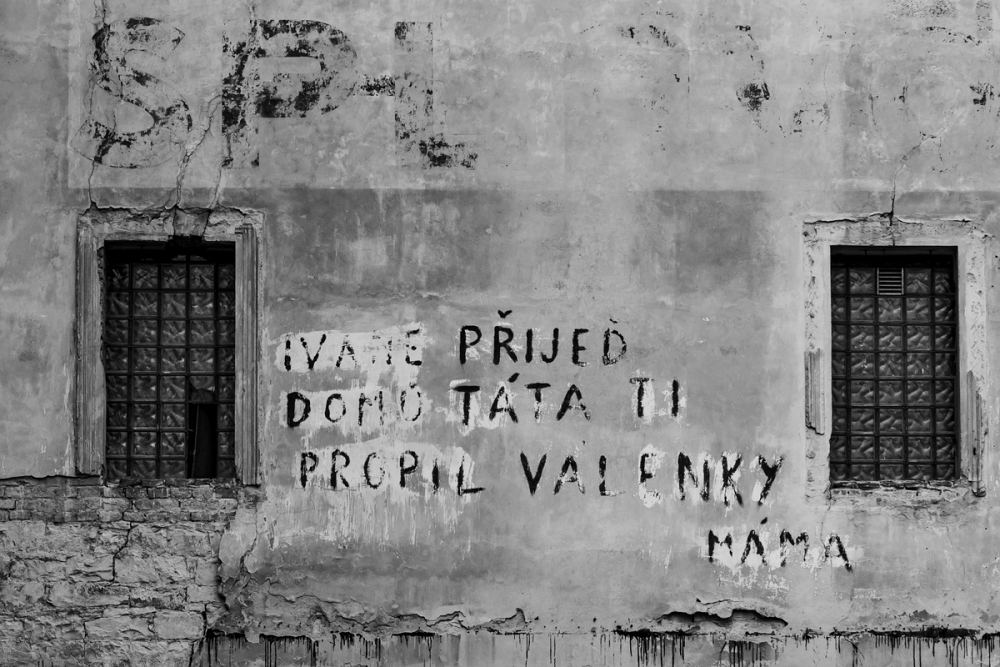 SPL
IVANE PŘIJEĎ
DOMŮ TÁTA TI
PROPIL VALENKY
MÁMA